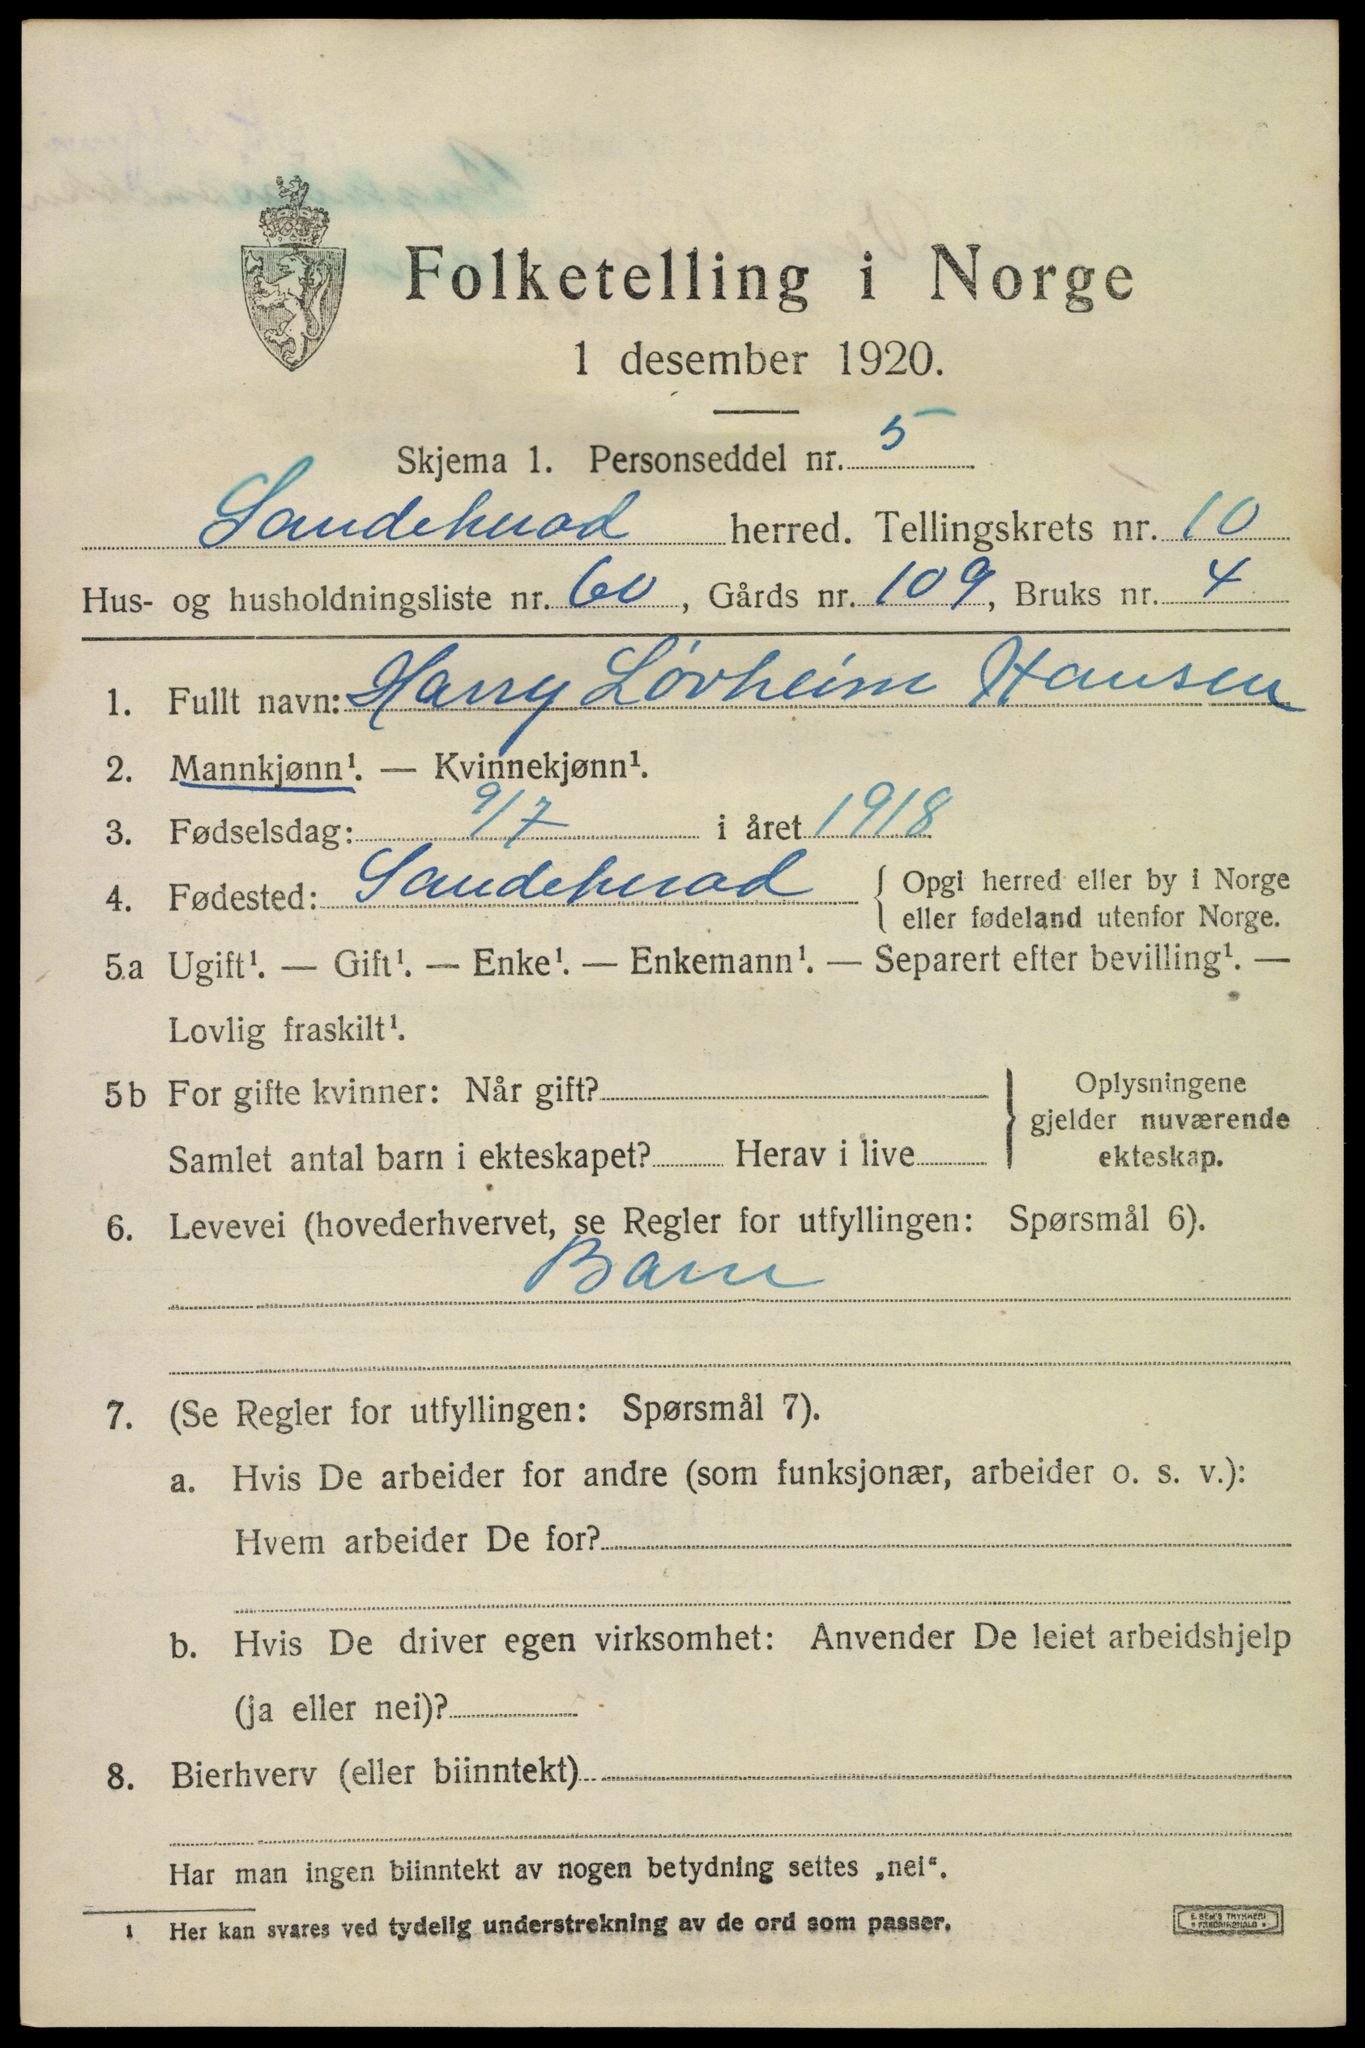 Folketelling i Norge
1 desember 1920.
Skjema 1. Personseddel nr. 5
Sandeherad herred. Tellingskrets nr. 10
Hus- og husholdningsliste nr. 60, Gårds nr. 109, Bruks nr. 4
1. Fullt navn: Harry Lövheim Hansen
2. Mannkjønn¹. — Kvinnekjønn¹.
3. Fødselsdag: 9/7 i året 1918
4. Fødested: Sandeherad { Opgi herred eller by i Norge
eller fødeland utenfor Norge.
5a Ugift¹. — Gift¹. — Enke¹. — Enkemann¹. — Separert efter bevilling¹. —
Lovlig fraskilt¹.
5b For gifte kvinner: Når gift?
Samlet antal barn i ekteskapet? Herav i live
} Oplysningene
gjelder nuværende
ekteskap.
6. Levevei (hovederhvervet, se Regler for utfyllingen: Spørsmål 6).
Barn
7. (Se Regler for utfyllingen: Spørsmål 7).
a. Hvis De arbeider for andre (som funksjonær, arbeider o. s. v.):
Hvem arbeider De for?
b. Hvis De driver egen virksomhet: Anvender De leiet arbeidshjelp
(ja eller nei)?
8. Bierhverv (eller biinntekt)
Har man ingen biinntekt av nogen betydning settes „nei“.
1 Her kan svares ved tydelig understrekning av de ord som passer.
E. SEM'S TRYKKERI
FREDRIKSHALD